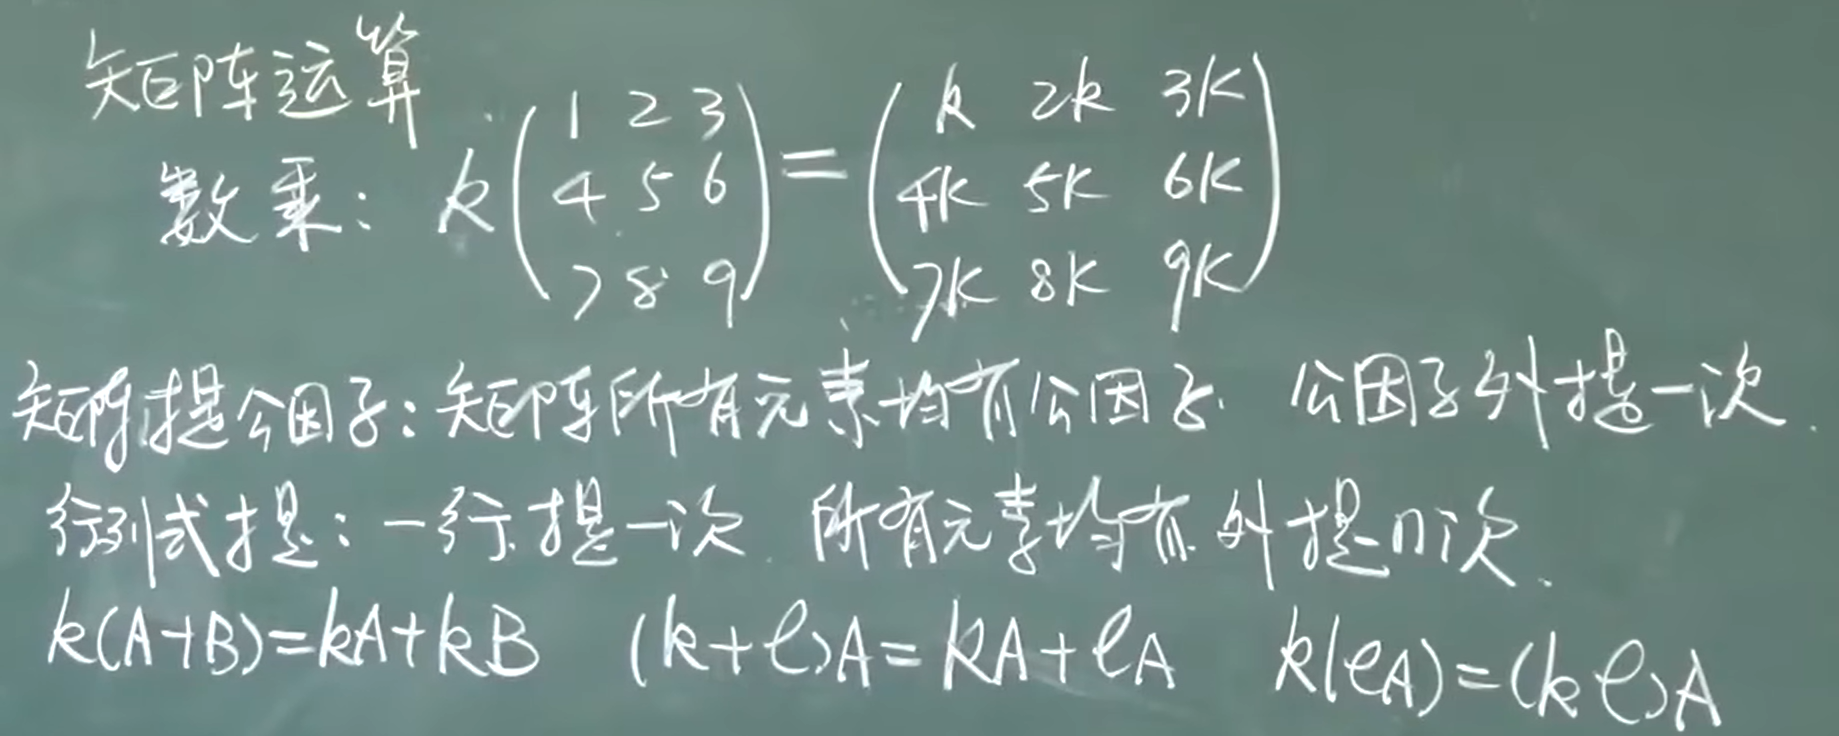 矩阵运算
数乘: k(1 2 3 = (k 2k 3k
4 5 6 4k 5k 6k
7 8 9) 7k 8k 9k)
矩阵提公因子: 矩阵所有元素均有公因子. 公因子外提一次.
行列式提: 一行提一次. 所有元素均有外提n次.
k(A+B)=kA+kB (k+l)A=kA+lA k(lA)=(kl)A